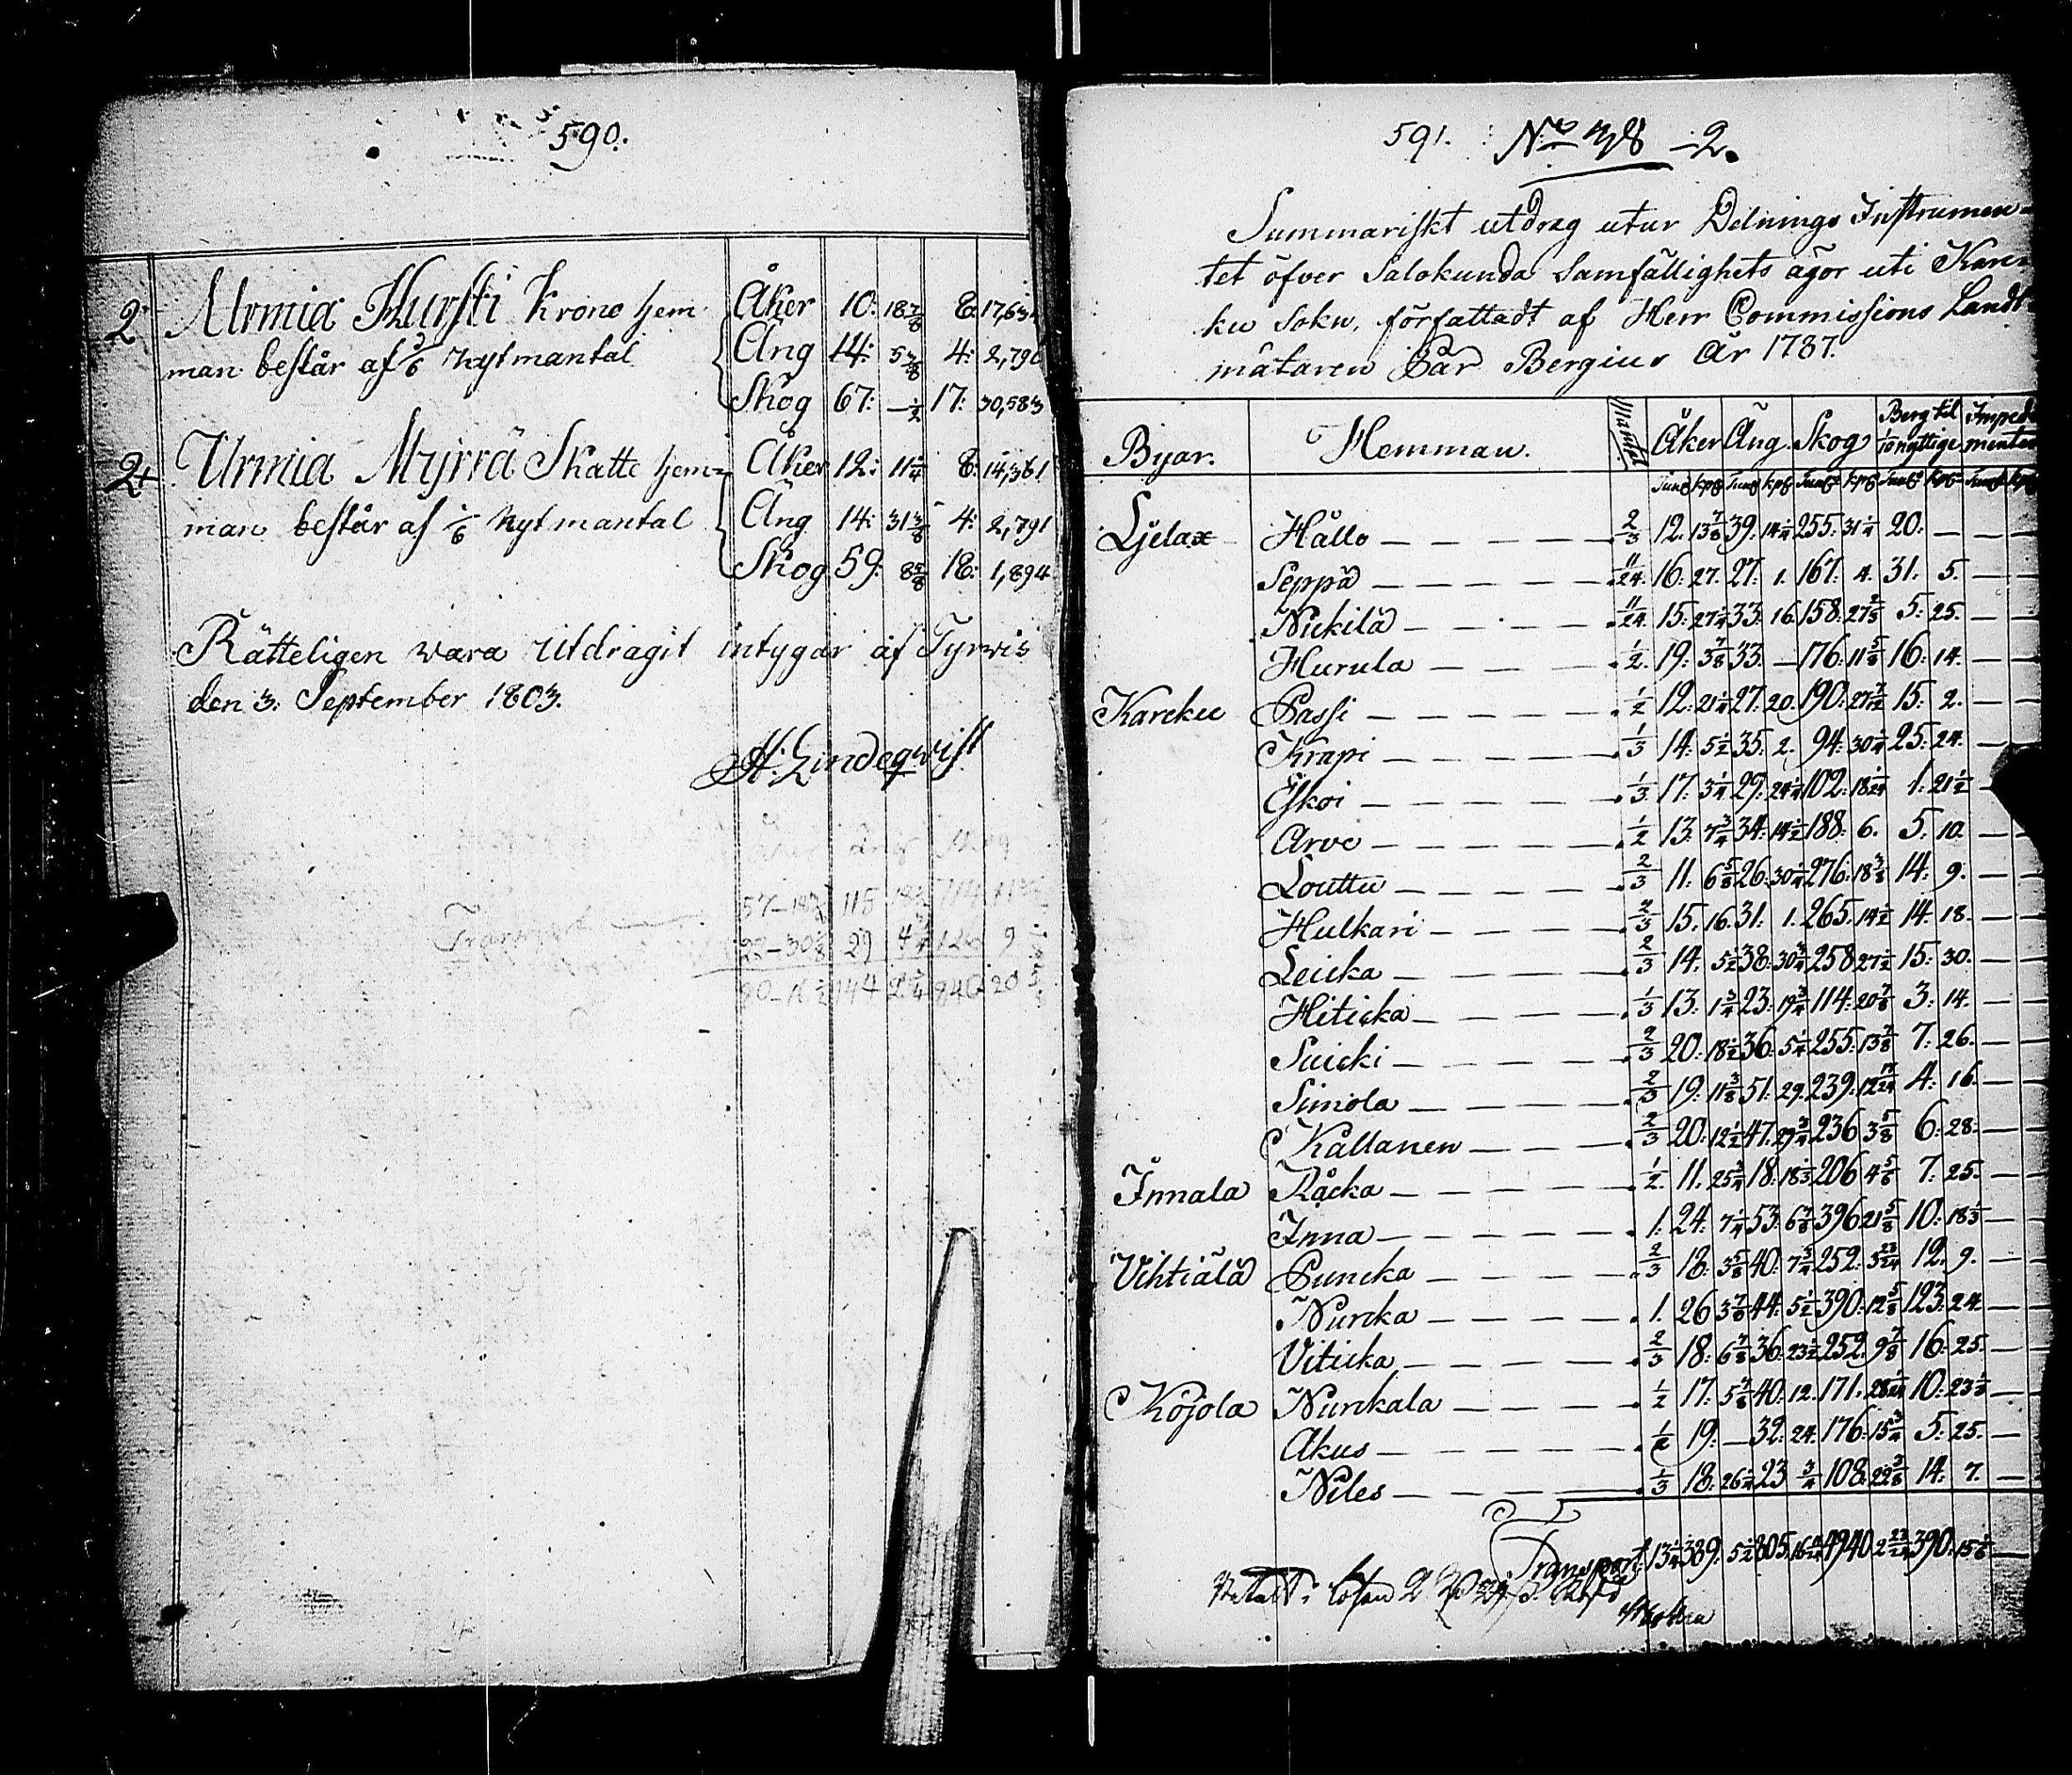 590.
2. Urmia Hursti Krono hem- Åker 10: 18 7/8 8: 17,63
man består af 5/6 nytmantal Äng 14: 5 7/8 4: 2,790
Skog 67: — 1/2 17: 30,583
2. Urmia Myrrä Skatte hem- Åker 12: 11 1/4 8: 14,361
man består af 5/6 nytmantal Äng 14: 31 3/8 4: 2,791
Skog 59: 8 5/8 18: 1,894
Rätteligen vara utdragit intygar af Tyrvis
den 3. September 1803.
A. Lindeqwist
591. No 78 2.
Summariskt utdrag utur Delnings Instrumen-
tet öfver Salokunda Samfällighets ägor uti Kar-
ku Sokn, författadt af Herr Commissions Landt-
mätaren Pär Bergius År 1787.
Byar. Hemman. Mantal Åker Äng Skog Berg til 1/10 nyttige Impedimenter
Tunl kpl Tunl kpl Tunl kpl Tunl kpl Tunl kpl
Ljelax Hållo 2/3 12. 13 7/8 39. 14 1/4 255. 31 1/4 20. — — —
Seppä 11/24 16: 27. 27: 1. 167: 4. 31. 5. — —
Nickilä 11/24 15: 27 1/4 33: 16. 158: 27 5: 25. — —
Hurula 1/2 19: 3 7/8 33. — 176: 11 5/8 16: 14. — —
Karcku Passi 1/2 12: 21 1/4 27. 20. 190: 27 15: 2. — —
Krapi 1/3 14: 5 1/2 35. 2. 94: 30 1/4 25: 24. — —
Eskoi 1/3 17: 3 1/4 29: 24 1/4 102: 18 1: 21 1/2 —
Arve 1/2 13: 7 3/4 34: 14 1/2 188: 6. 5: 10. — —
Louttu 2/3 11: 6 5/8 26: 30 1/4 276: 18 3/8 14: 9. — —
Hulkari 2/3 15. 16. 31: 1. 265. 14 1/2 14: 18. — —
Leicka 2/3 14. 5 1/2 38: 30 3/4 258 27 1/2 15: 30. — —
Hiticka 1/3 13: 1 3/4 23: 19 3/4 114: 20 7/8 3: 14. — —
Suicki 2/3 20: 18 1/2 36: 5 1/4 255: 13 7/8 7: 26. — —
Simola 2/3 19: 11 3/8 51. 29. 239: 12 4: 16. — —
Kallanen 2/3 20: 12 1/2 47: 29 3/4 236 3 5/8 6: 28. — —
Innala Råcka 1/2 11. 25 3/4 18: 18 1/3 206 4 5/6 7: 25. — —
Inna 1. 24. 7 1/4 53: 6 7/8 396 21 5/8 10: 18 1/3 — —
Vihtiälä Puncka 2/3 18: 3 5/8 40: 7 3/4 252. 3 12. 9. — —
Nurcka 1. 26 3 7/8 44. 5 1/2 390: 12 5/8 123: 24. — —
Viticka 2/3 18: 6 7/8 36: 23 1/2 252. 9 7/8 16: 25. — —
Kojola Nurckala 1/2 17: 5 7/8 40: 12. 171. 28 10: 23 1/3 — —
Akus 1/2 19: — 32: 24. 176: 15 3/4 5: 25. — —
Niles 1/3 18: 26 1/4 23 3/4 108: 22 3/8 14: 7. — —
Transport: 13 1/4 389: 5 1/2 805. 16 4940. 2 390. 15